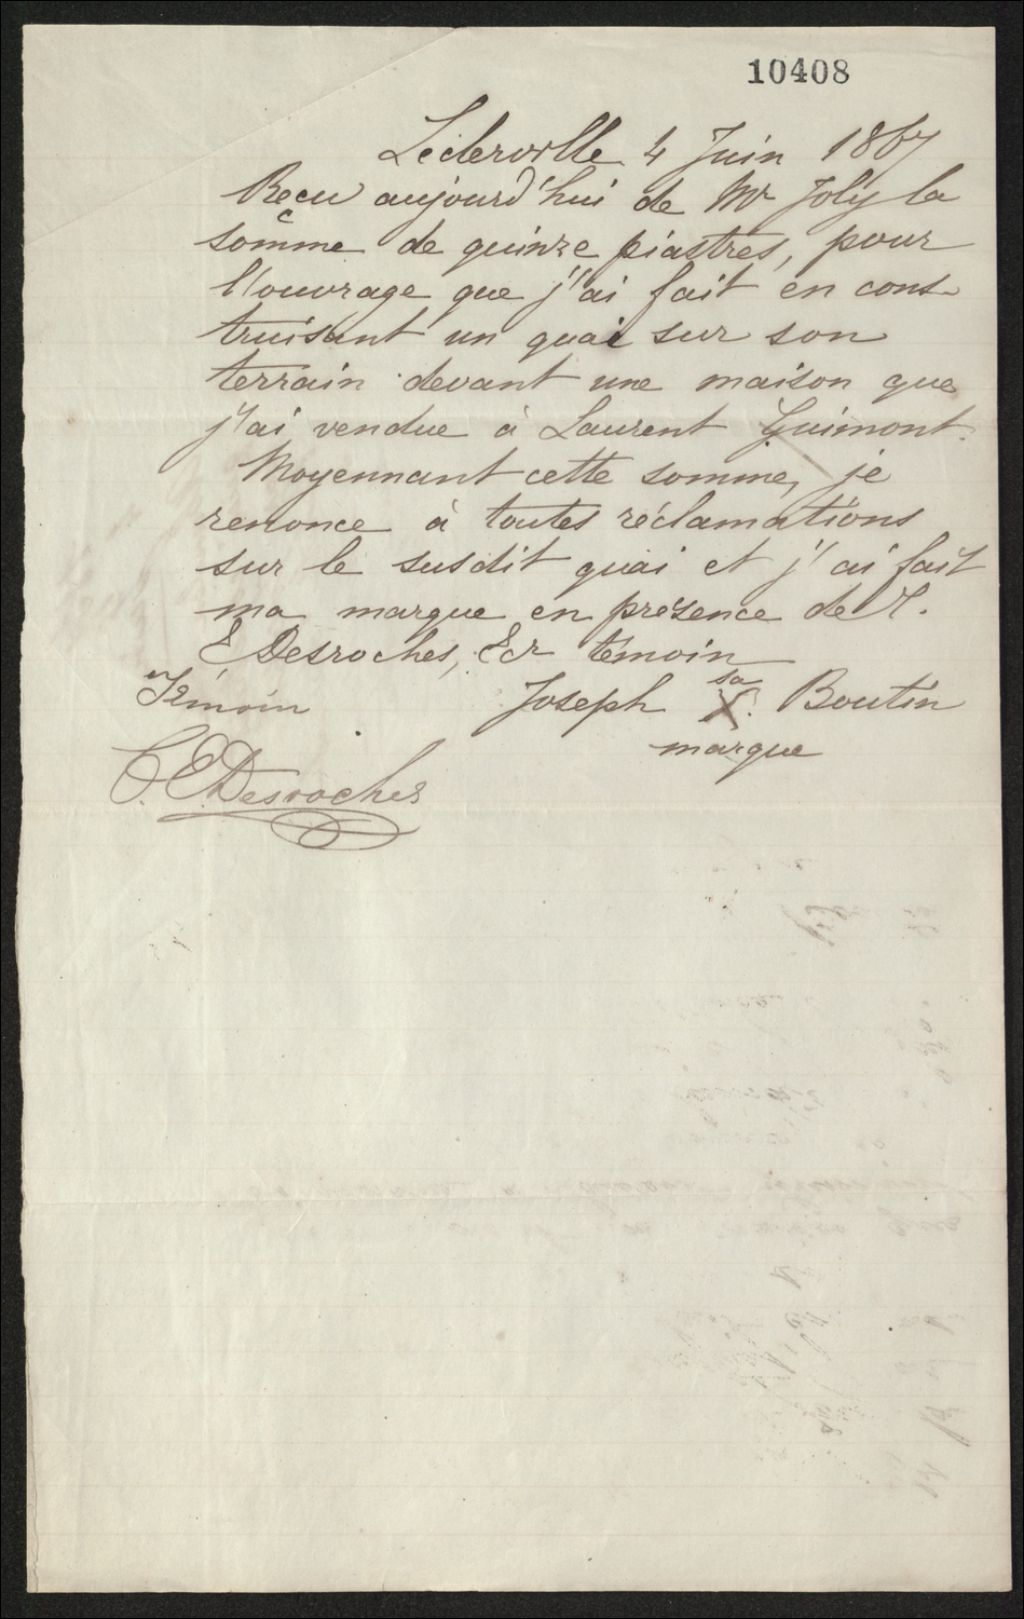 10408
Leclerville 4 Juin 1867
Reçu aujourd'hui de Mr Joly la
somme de quinze piastres, pour
l'ouvrage que j'ai fait en cons-
truisant un quai sur son
terrain devant une maison que
j'ai vendue à Laurent Guimont.
Moyennant cette somme, je
renonce à toutes réclamations
sur le susdit quai et j'ai fait
ma marque en présence de
E Desroches, Ecr témoin
Témoin Joseph sa X. Boutin
marque
E. Desroches